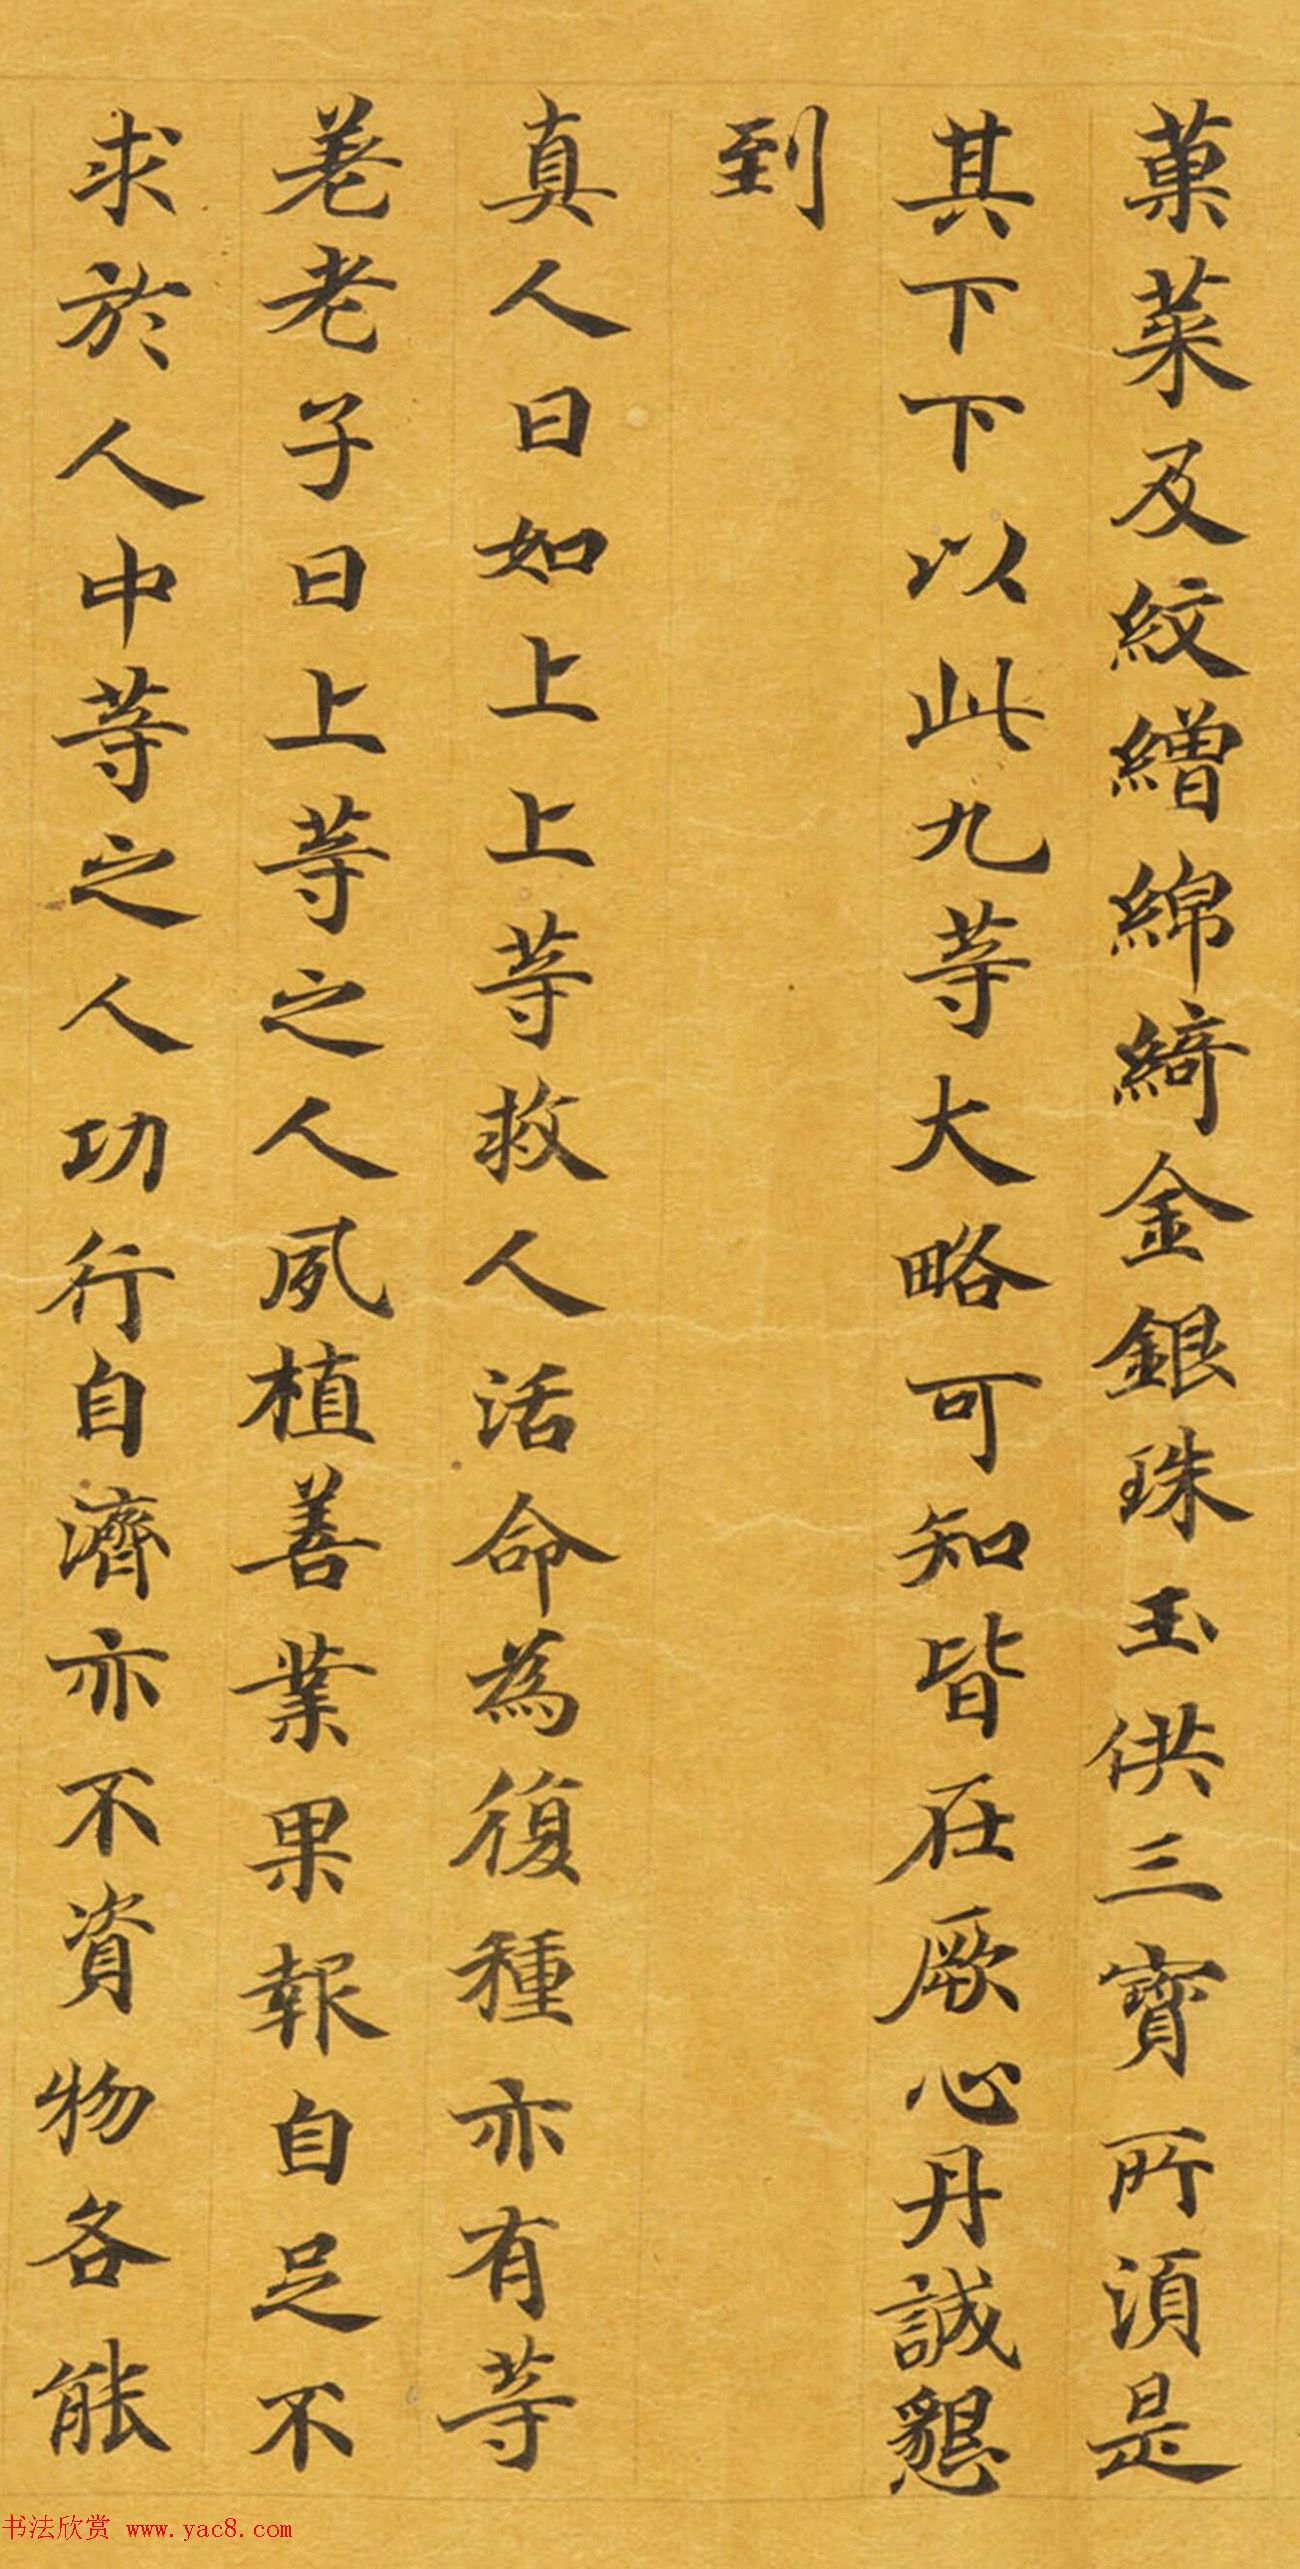 菓菜及紋繒綿綺金銀珠玉供三寶所須是
其下下以此九等大略可知皆在厥心丹誠懇
到
真人曰如上上等救人活命為復種亦有等
差老子曰上等之人夙植善業果報自足不
求於人中等之人功行自濟亦不資物各能
书法欣赏 www.yac8.com